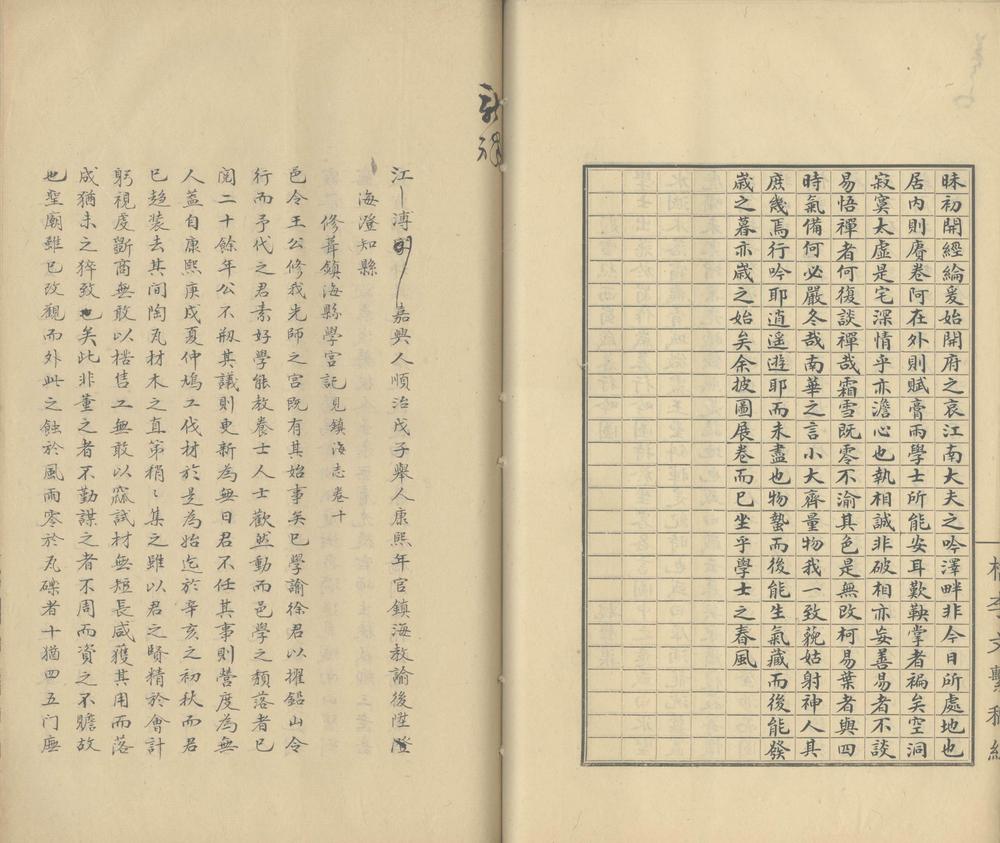 昧初開經綸爰始開府之哀江南大夫之吟澤畔非今日所處地也
居內則賡卷阿在外則賦膏雨學士所能安耳歎鞅掌者褊矣空洞
寂寞太虛是宅深情乎亦澹心也執相誠非破相亦妄善易者不談
易悟禪者何復談禪哉霜雪既零不渝其色是無改柯易葉者與四
時氣備何必嚴冬哉南華之言小大齊量物我一致藐姑射神人具
庶幾焉行吟耶逍遥遊耶而未盡也物蟄而後能生氣藏而後能發
歲之暮亦歲之始矣余披圖展卷而已坐乎學士之春風
文繫稿
江 溥 嘉興人順治戊子舉人康熙年官鎮海教諭後陞澄
海澄知縣
修葺鎮海縣學宮記見鎮海志卷十
邑令王公修我先師之宮既有其始事矣已學諭徐君以擢鉛山令
行而予代之君素好學能教養士人士歡然動而邑學之頽落者已
閱二十餘年公不剏其議則更新為無日君不任其事則營度為無
人蓋自康熙庚戌夏仲鳩工伐材於是為始迄於辛亥之初秋而君
已趨裝去其間陶瓦材木之直第稍〻集之雖以君之賢精於會計
躬視虔斷商無敢以楛售工無敢以窳試材無短長咸獲其用而落
成猶未之猝致也矣此非董之者不勤謀之者不周而資之不贍故
也聖廟雖已改觀而外此之蝕於風雨零於瓦礫者十猶四五门廡